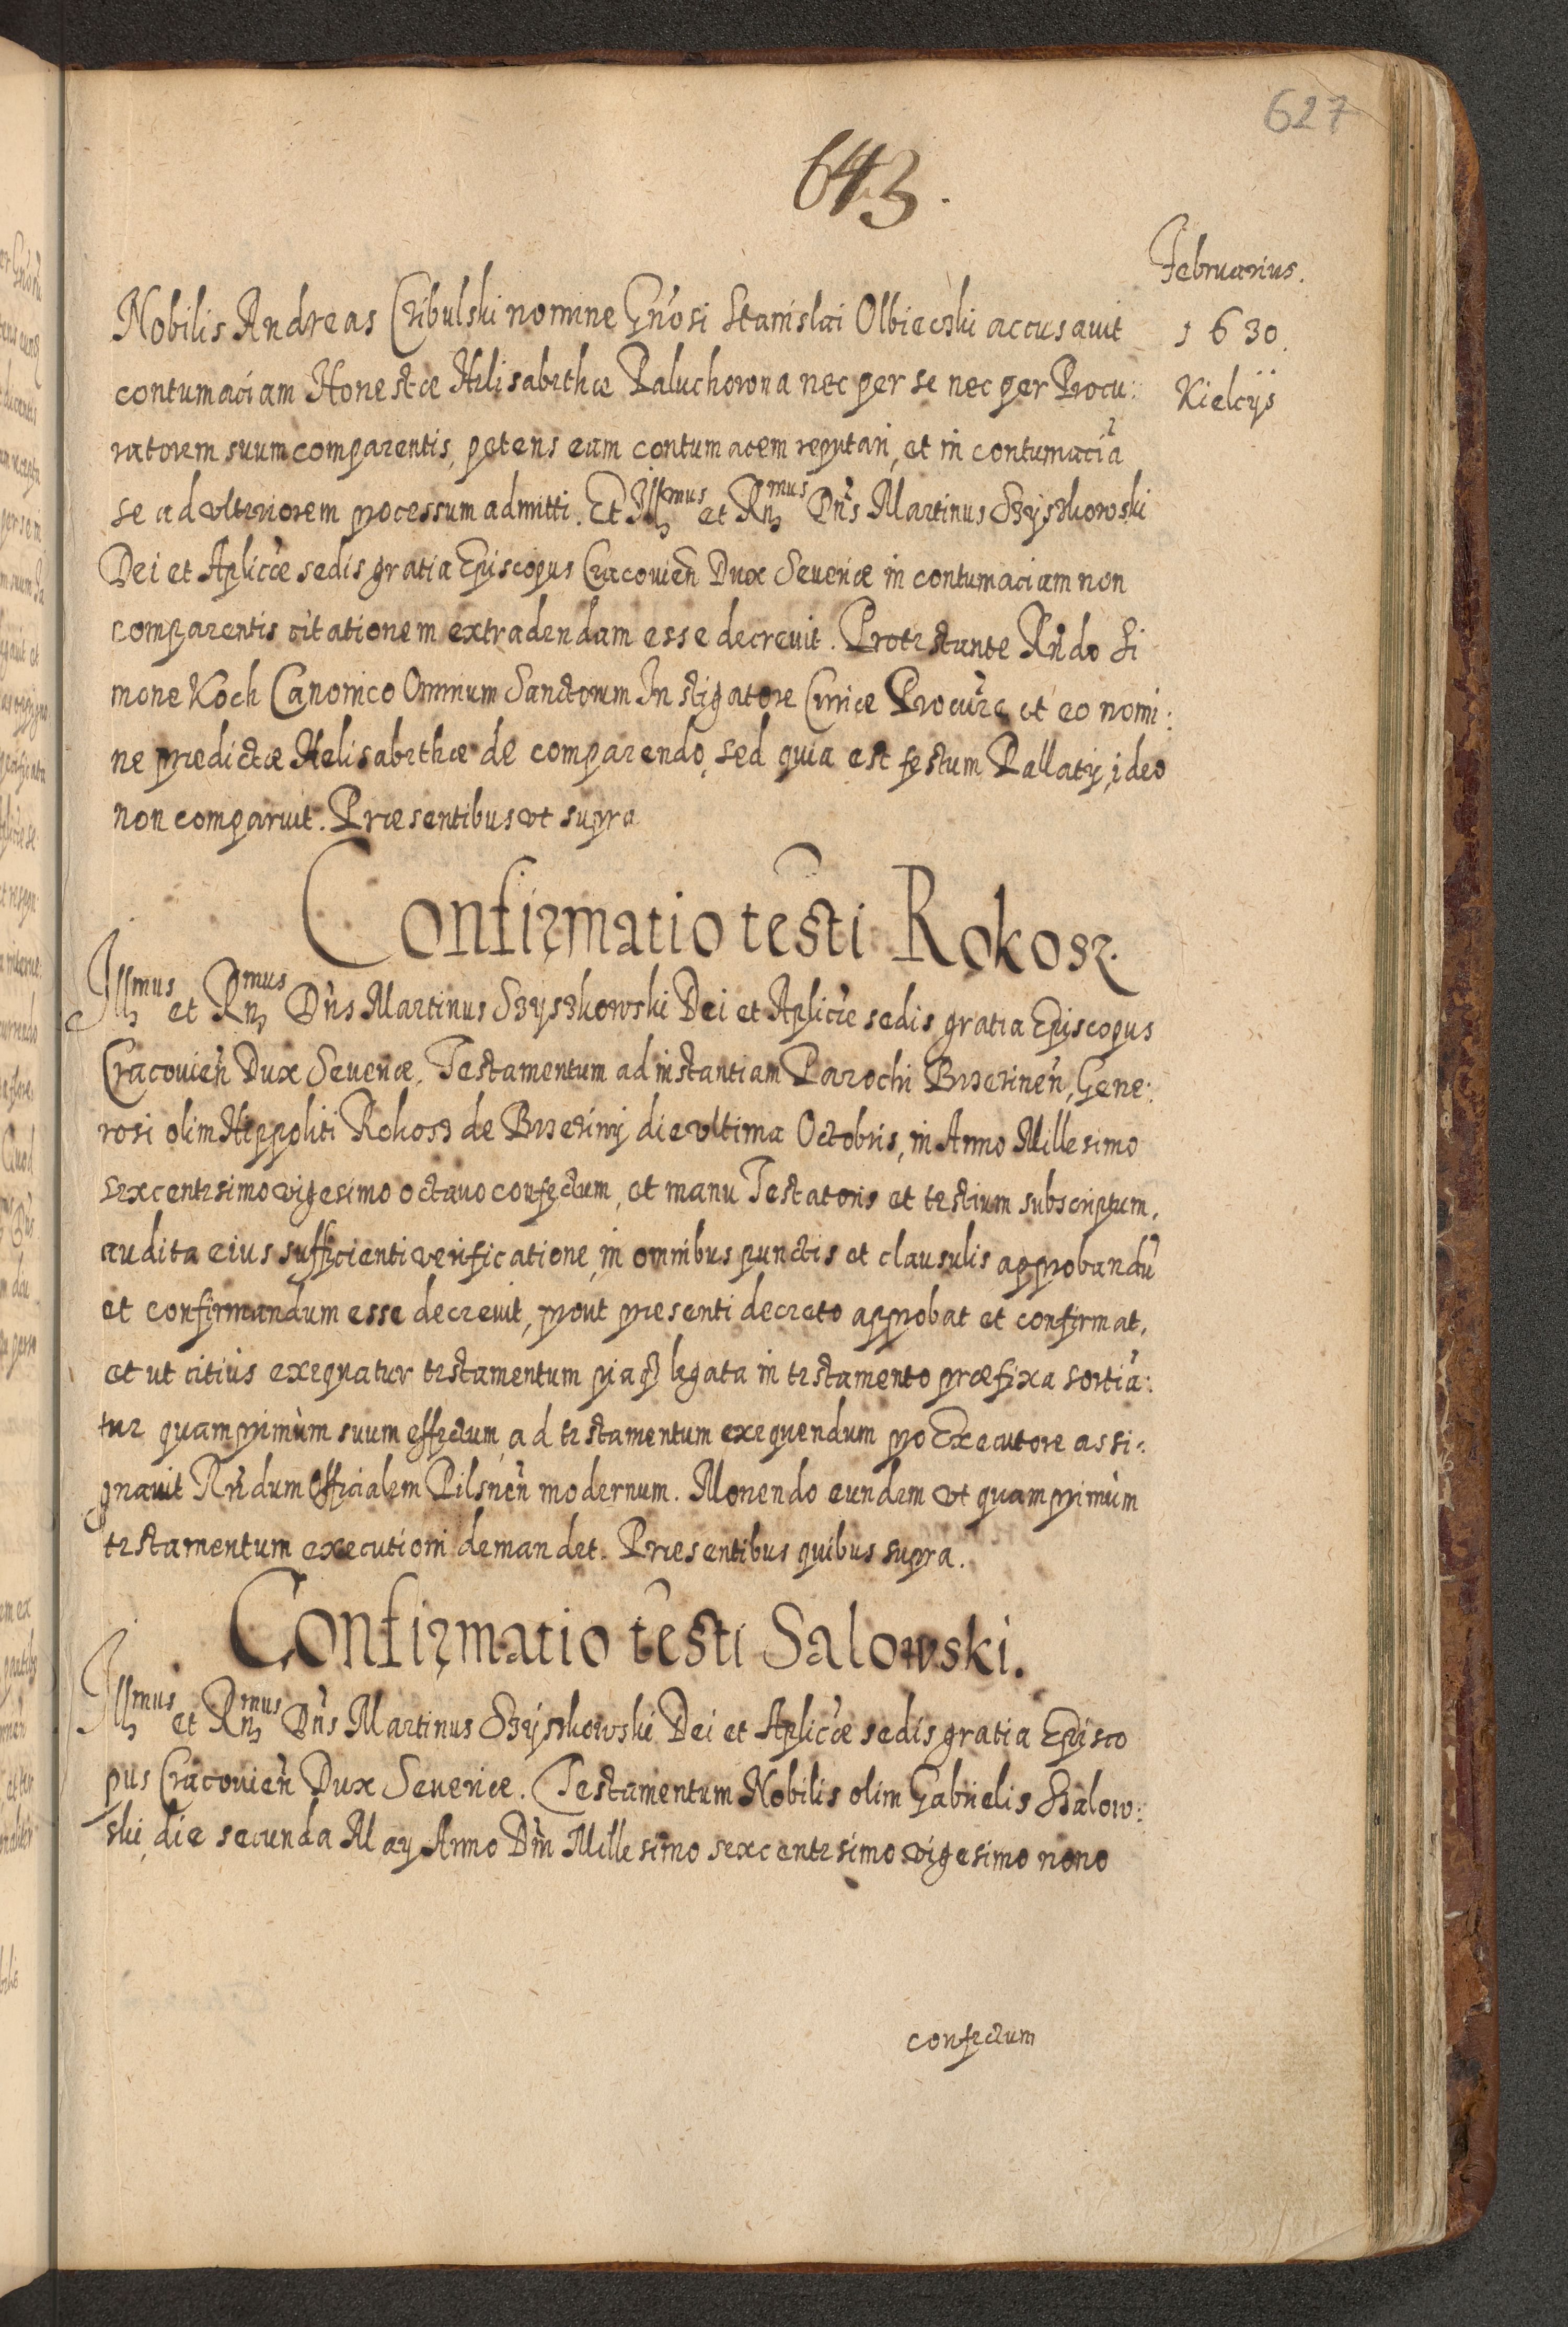 627
643.
Februarius.
1630.
Kielcijs
Nobilis Andreas Cribulski nomine Gnosi Stanislai Olbiecski accusauit
contumaciam Honestæ Helisabethæ Paluchowna nec per se nec per Procu:
ratorem suum comparentis, petens eam contumacem reputari, et in contumaciã
se ad vlteriorem processum admitti. Et Illmus et Rndmus Dñs Martinus Szyszkowski
Dei et Aplicæ sedis gratia Episcopus Cracouień Dux Seueriæ in contumaciam non
comparentis citationem extradendam esse decreuit. Protestante Rndo Si
mone Koch Canonico Omnium Sanctorum Instigatore Curiæ Procure et eo nomi:
ne prædictæ Helisabethæ de comparendo, sed quia est festum Pallatij, ideo
non comparuit. Præsentibus vt supra
Confirmatio testi Rokosz.
Illmus et Rndmus Dñs Martinus Szyszkowski Dei et Aplicæ sedis gratia Episcopus
Cracouień Dux Seueriæ. Testamentum ad instantiam Parochi Brzezineń, Gene:
rosi olim Hippoliti Rokosz de Brzeziny die vltima Octobris, in Anno Millesimo
sexcentesimo vigesimo octauo confectum, et manu Testatoris et testium subscriptum,
audita eius sufficienti verificatione, in omnibus punctis et clausulis approbandũ
et confirmandum esse decreuit, prout præsenti decreto approbat et confirmat,
et ut citius exequatur testamentum piaq legata in testamento præfixa sortiã:
tur quamprimùm suum effectum, ad testamentum exequendum pro Executore assi:
gnauit Rndum Officialem Pilsneń modernum. Monendo eundem vt quamprimùm
testamentum executioni demandet. Præsentibus quibus supra.
Confirmatio testi Salowski.
Illmus et Rndmus Dñs Martinus Szyszkowski Dei et Aplicæ sedis gratia Episco
pus Cracouień Dux Seueriæ. Testamentum Nobilis olim Gabrielis Szalow:
ski, die secunda May Anno Dñi Millesimo sexcentesimo vigesimo nono
confectum